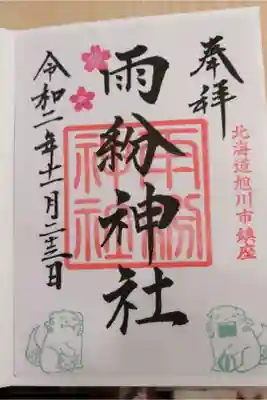 奉拝
北海道旭川市鎮座
雨粉神社
雨粉
神社
令和二年十一月二十三日